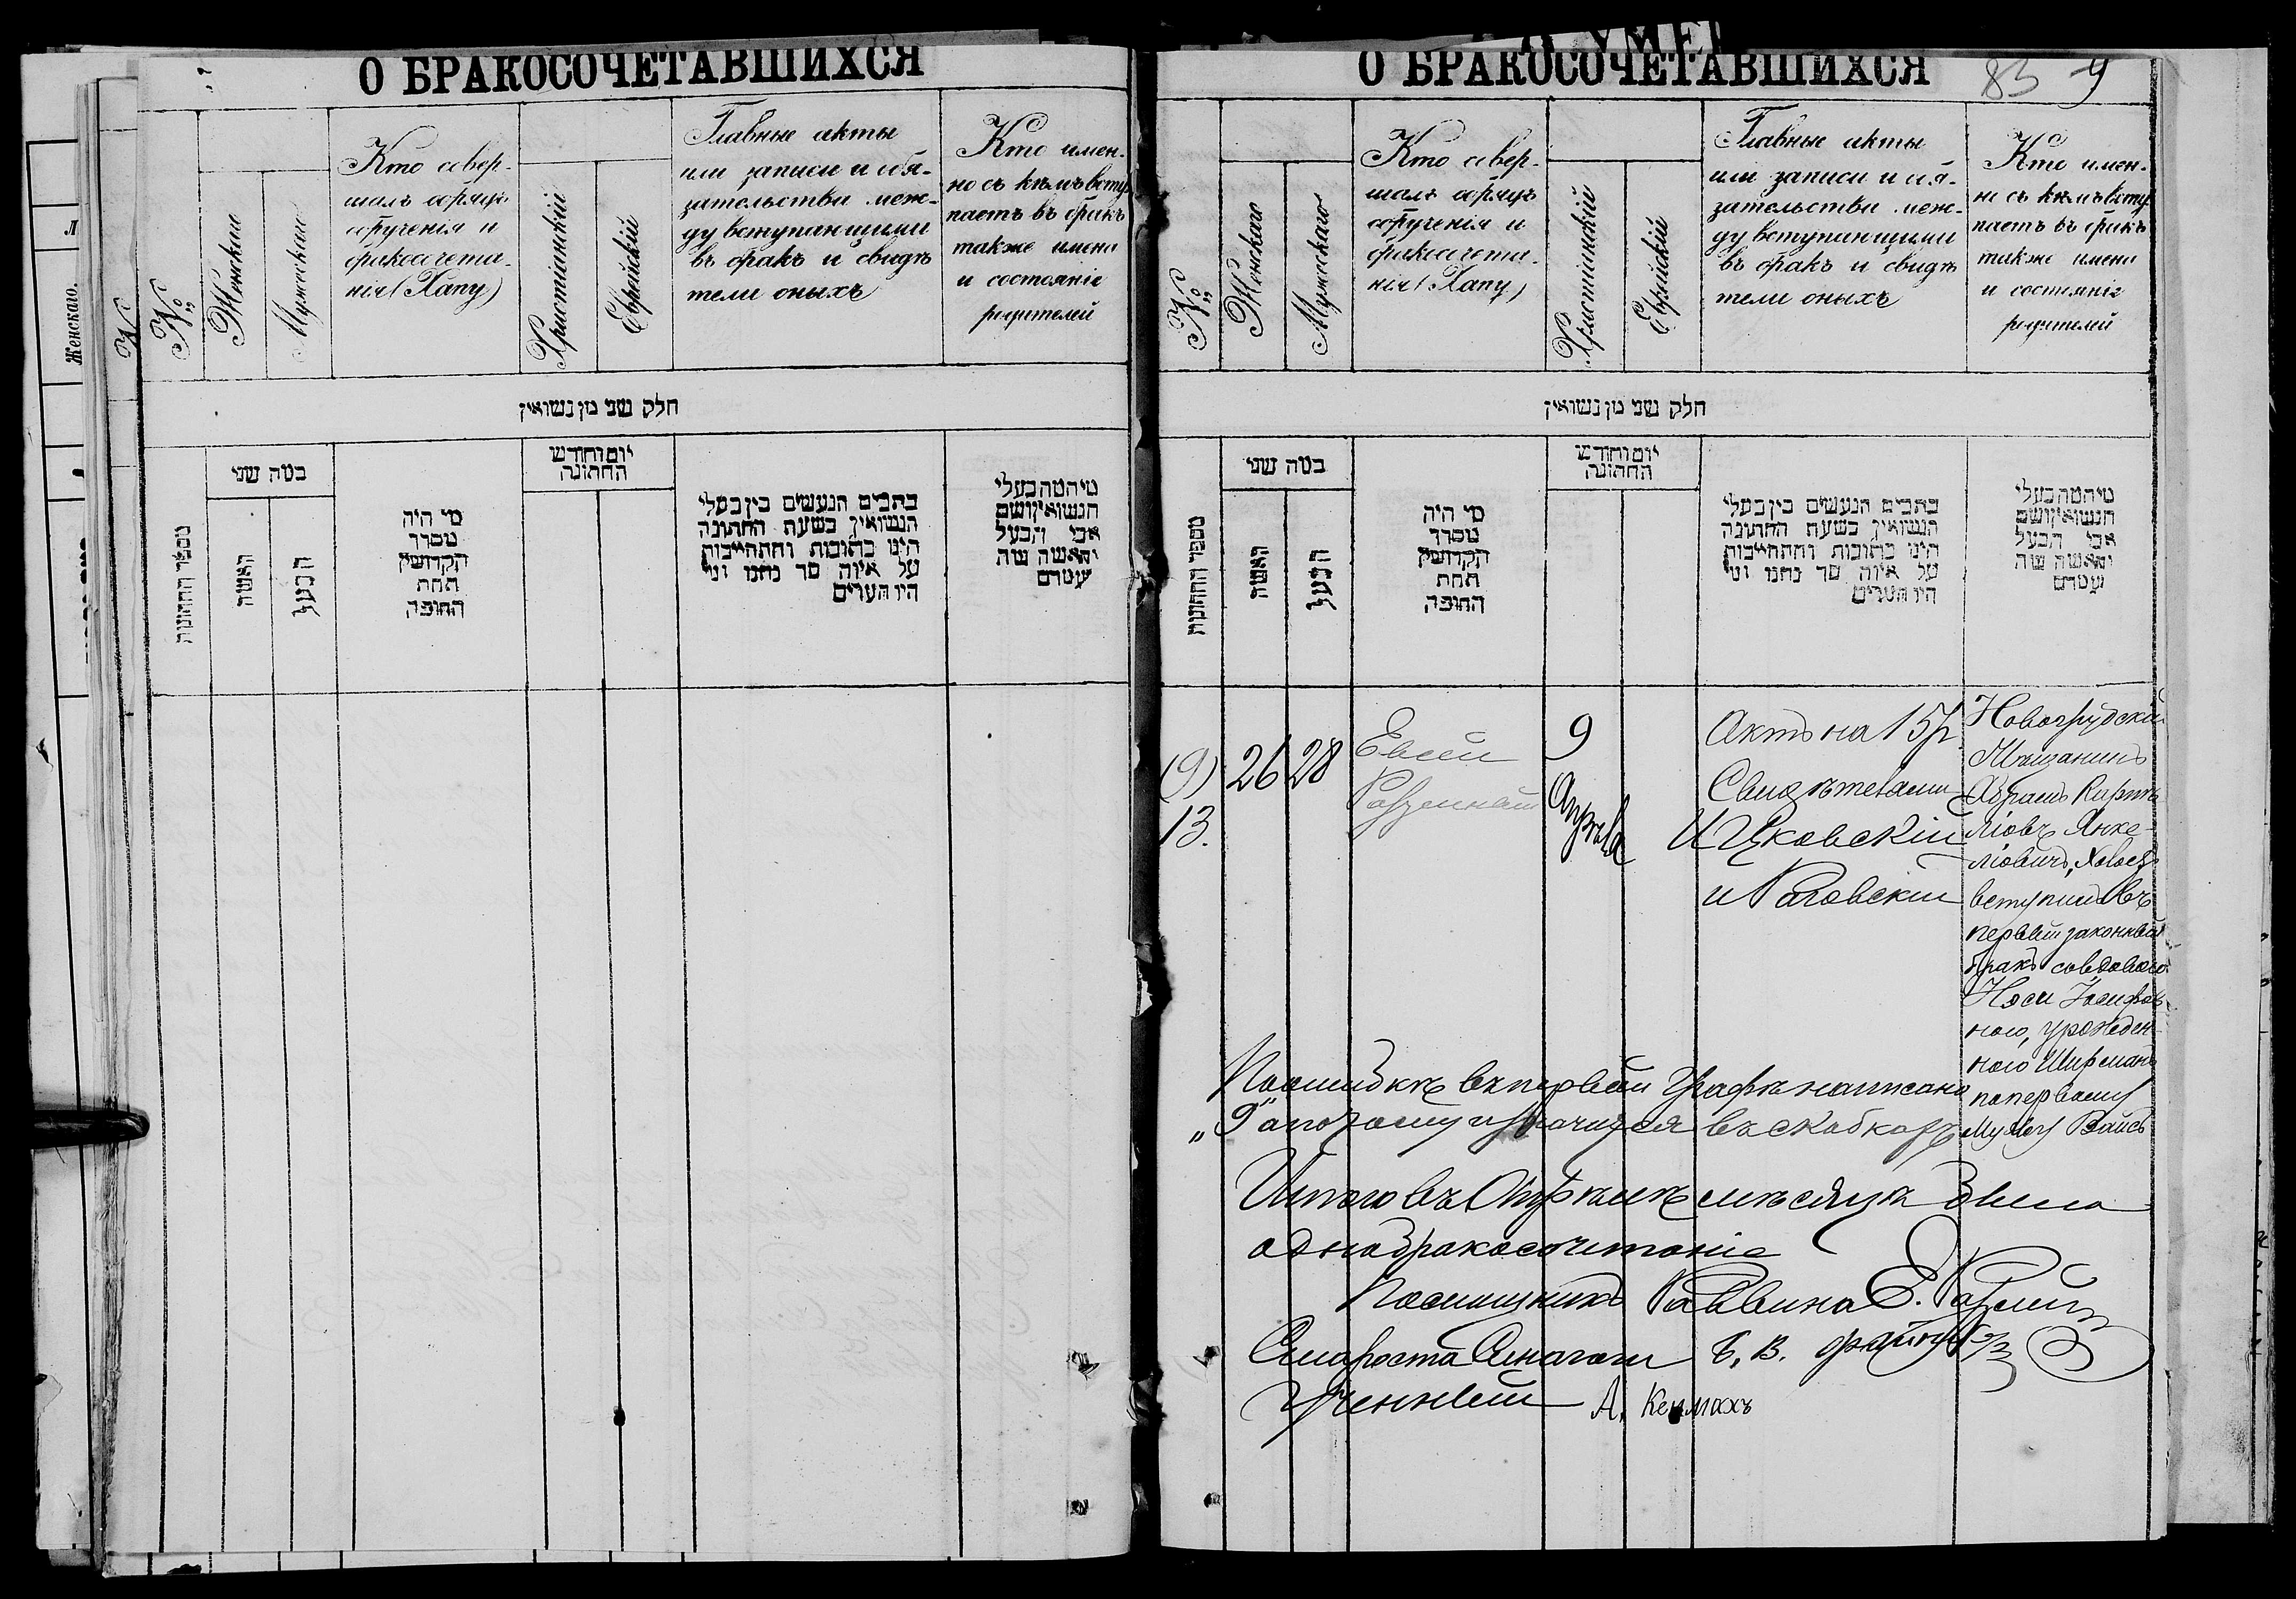 О БРАКОСОЧЕТАВШИХСЯ
№
Женскаго
Мужескаго
Кто совер-
шалъ обрядъ
обрученія и
бракосочета-
нія (Хапу)
Христіанскій
Еврейскій
Главные акты
или записи и обя-
зательства меж-
ду вступающими
въ бракъ и свидѣ
тели оныхъ
Кто имен-
но съ кѣмъ всту
паетъ въ бракъ
также имена
и состояніе
родителей
חלק שני מן נשואין
מספר החתונות
כמה שני
האשה
הבעל
מי היה
מסדר
הקדושין
תחת
החופה
יום וחודש
החתונה
כתבים הנעשים בין בעלי
הנשואין בשעת החתונה
היינו כתובות והתחייבות
על איזה סך נתנו ומי
היו העדים
מיהמה בעלי
הנשואין ושם
אבי הבעל
והאשה ומה
עטרם
Женскаго.
О БРАКОСОЧЕТАВШИХСЯ
83 9
№
Женскаго
Мужескаго
Кто совер-
шалъ обрядъ
обрученія и
бракосочета-
нія (Хапу)
Христіанскій
Еврейскій
Главные акты
или записи и обя-
зательства меж-
ду вступающими
въ бракъ и свидѣ
тели оныхъ
Кто имен-
но съ кѣмъ всту
паетъ въ бракъ
также имена
и состояніе
родителей
חלק שני מן נשואין
מספר החתונות
כמה שני
האשה
הבעל
מי היה
מסדר
הקדושין
תחת
החופה
יום וחודש
החתונה
כתבים הנעשים בין בעלי
הנשואין בשעת החתונה
היינו כתובות והתחייבות
על איזה סך נתנו ומי
היו העדים
מיהמה בעלי
הנשואין ושם
אבי הבעל
והאשה ומה
עטרם
(9)
13.
26
28
Евсей
9
Апрѣля
Актъ на 15 р.
Свидѣтелями
Ицковскій
и Раговскій
Новогрудскій
Мѣщанинъ
Абрамъ
Янке-
ліовичъ, Холост
вступилъ въ
первый законный
бракъ совдовою
Неси Іосифов-
ною, урожден-
ною Ширманъ
по первому
мужу Вайсъ
По ошибкѣ въ первой графѣ написано
„9" а потому и значится въ скобкахъ
Итого въ Апрѣлѣ мѣсяцѣ было
одно бракосочетаніе
Помощникъ Раввина Е.
Староста Синагоги Б. В.
Ученный А.